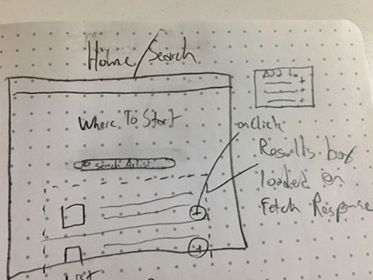 Home/Search
Add to
Where To Start
onClick
Search Artist
Results box
loaded on
Fetch Response